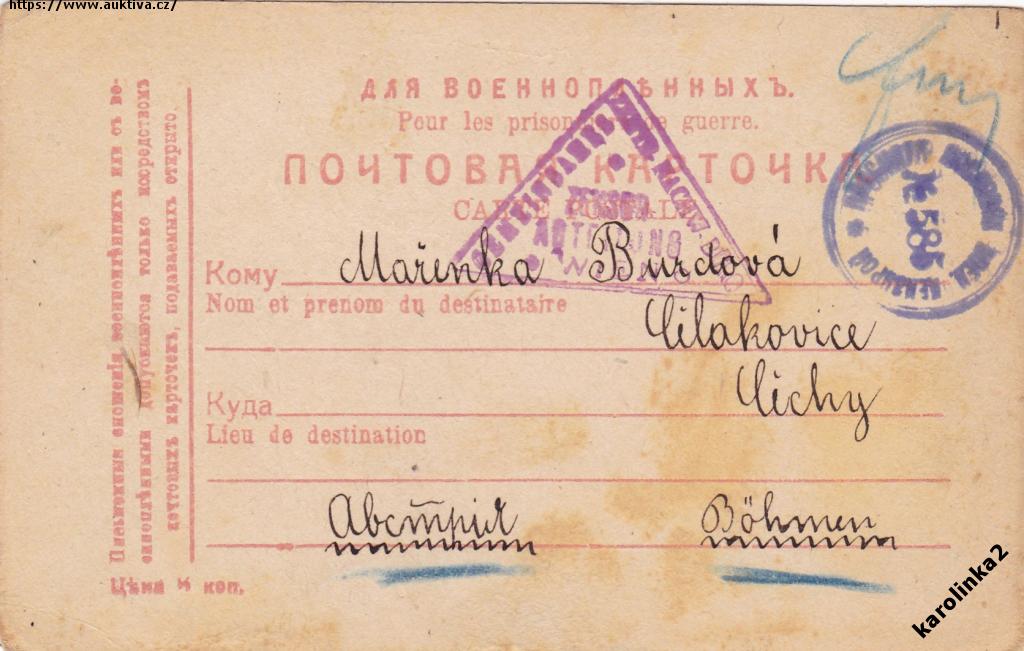 https://www.auktiva.cz/
ДЛЯ ВОЕННОПЛѢННЫХЪ.
Pour les prisonniers de guerre.
ПОЧТОВАЯ КАРТОЧКА
CARTE POSTALE
ZENSUR
ABTEILUNG
WIEN
№ 585
Кому Mařenka Burdová
Nom et prenom du destinataire
Čilakovice
Куда Čichy
Lieu de destination
Австрия Böhmen
Письменныя сношенія военноплѣнныхъ или съ во-
енноплѣнными допускаются только посредствомъ
почтовыхъ карточекъ, подаваемыхъ открыто.
Цѣна коп.
karolinka2